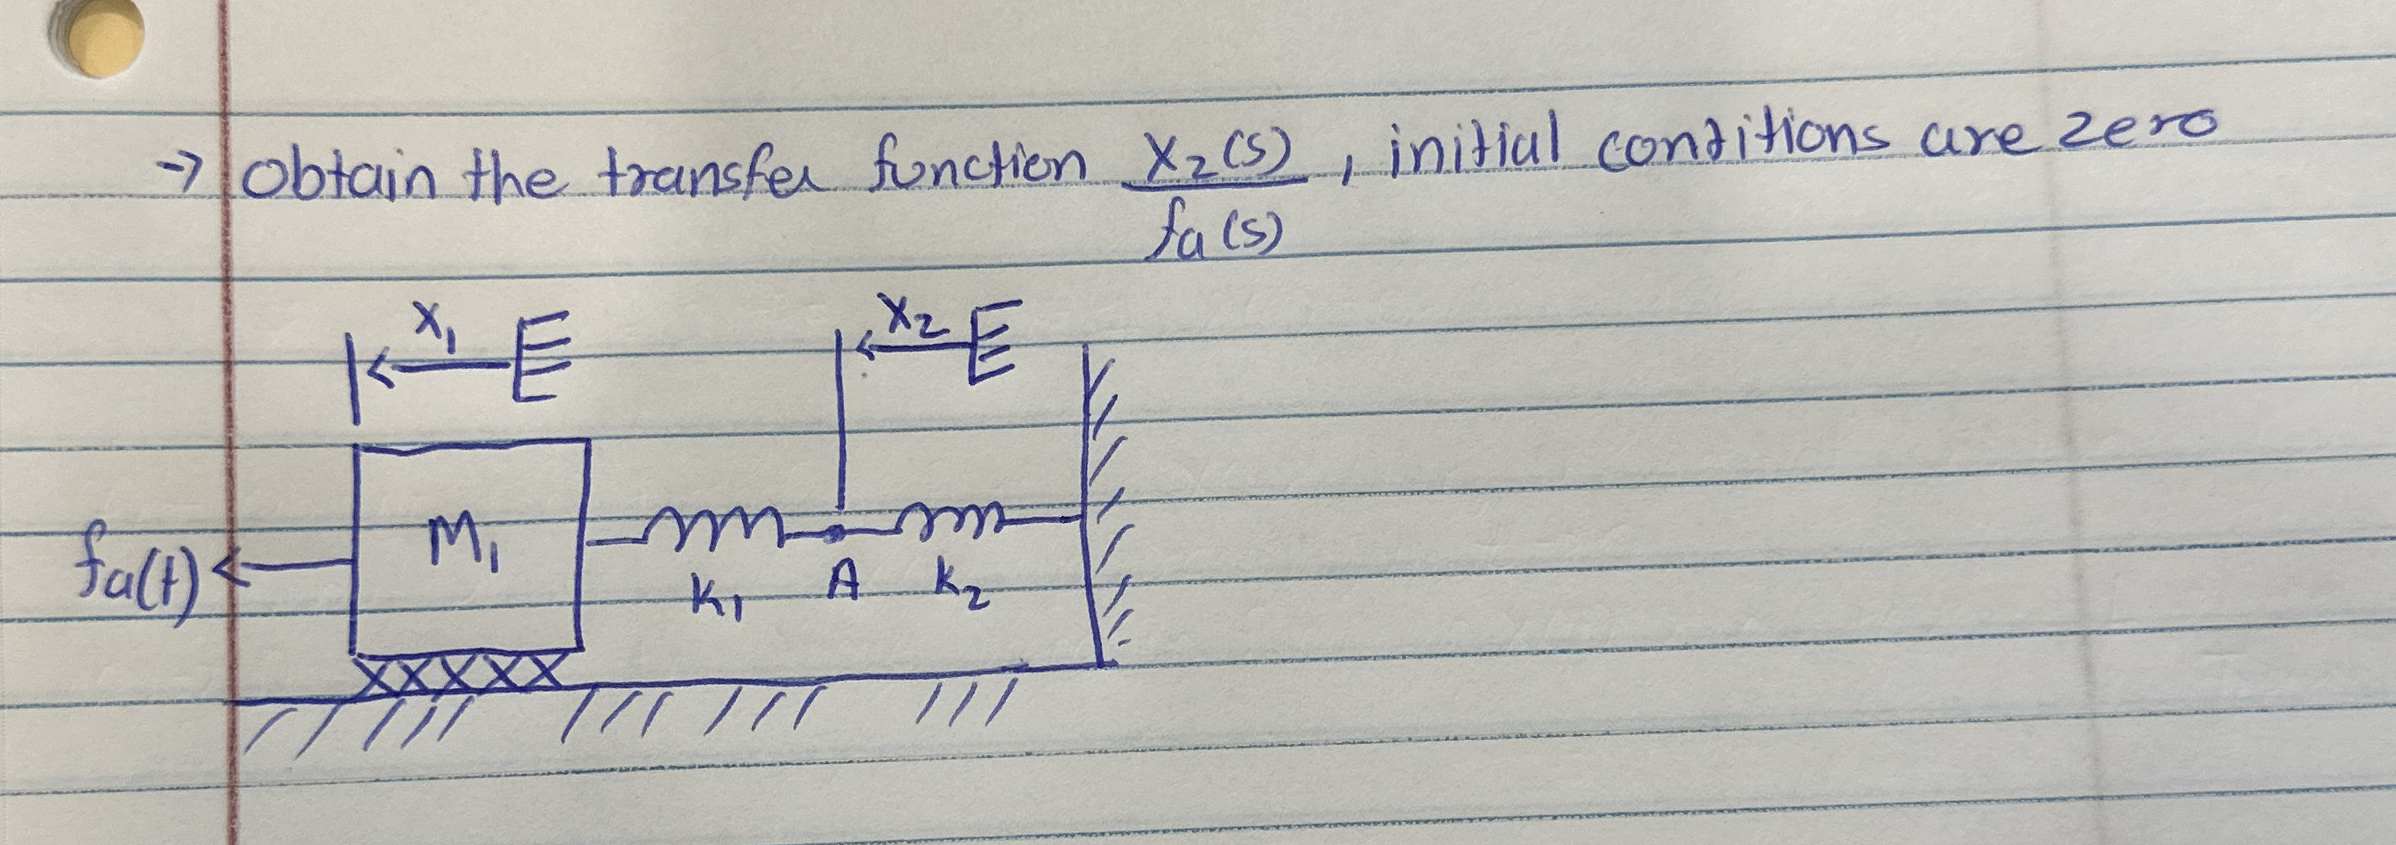 → obtain the transfer function X₂(s)/fa(s), initial conditions are zero
X₁ X₂
fa(t) M₁
K₁ A K₂